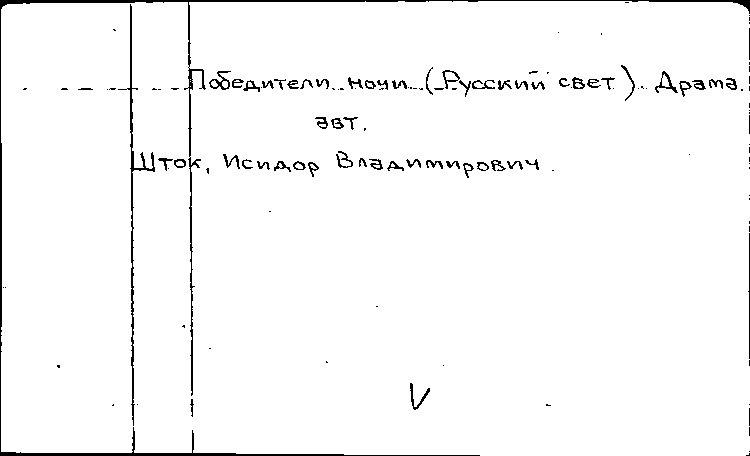 Победители ночи (Русский свет). Драма.
авт.
Шток, Исидор Владимирович.
V